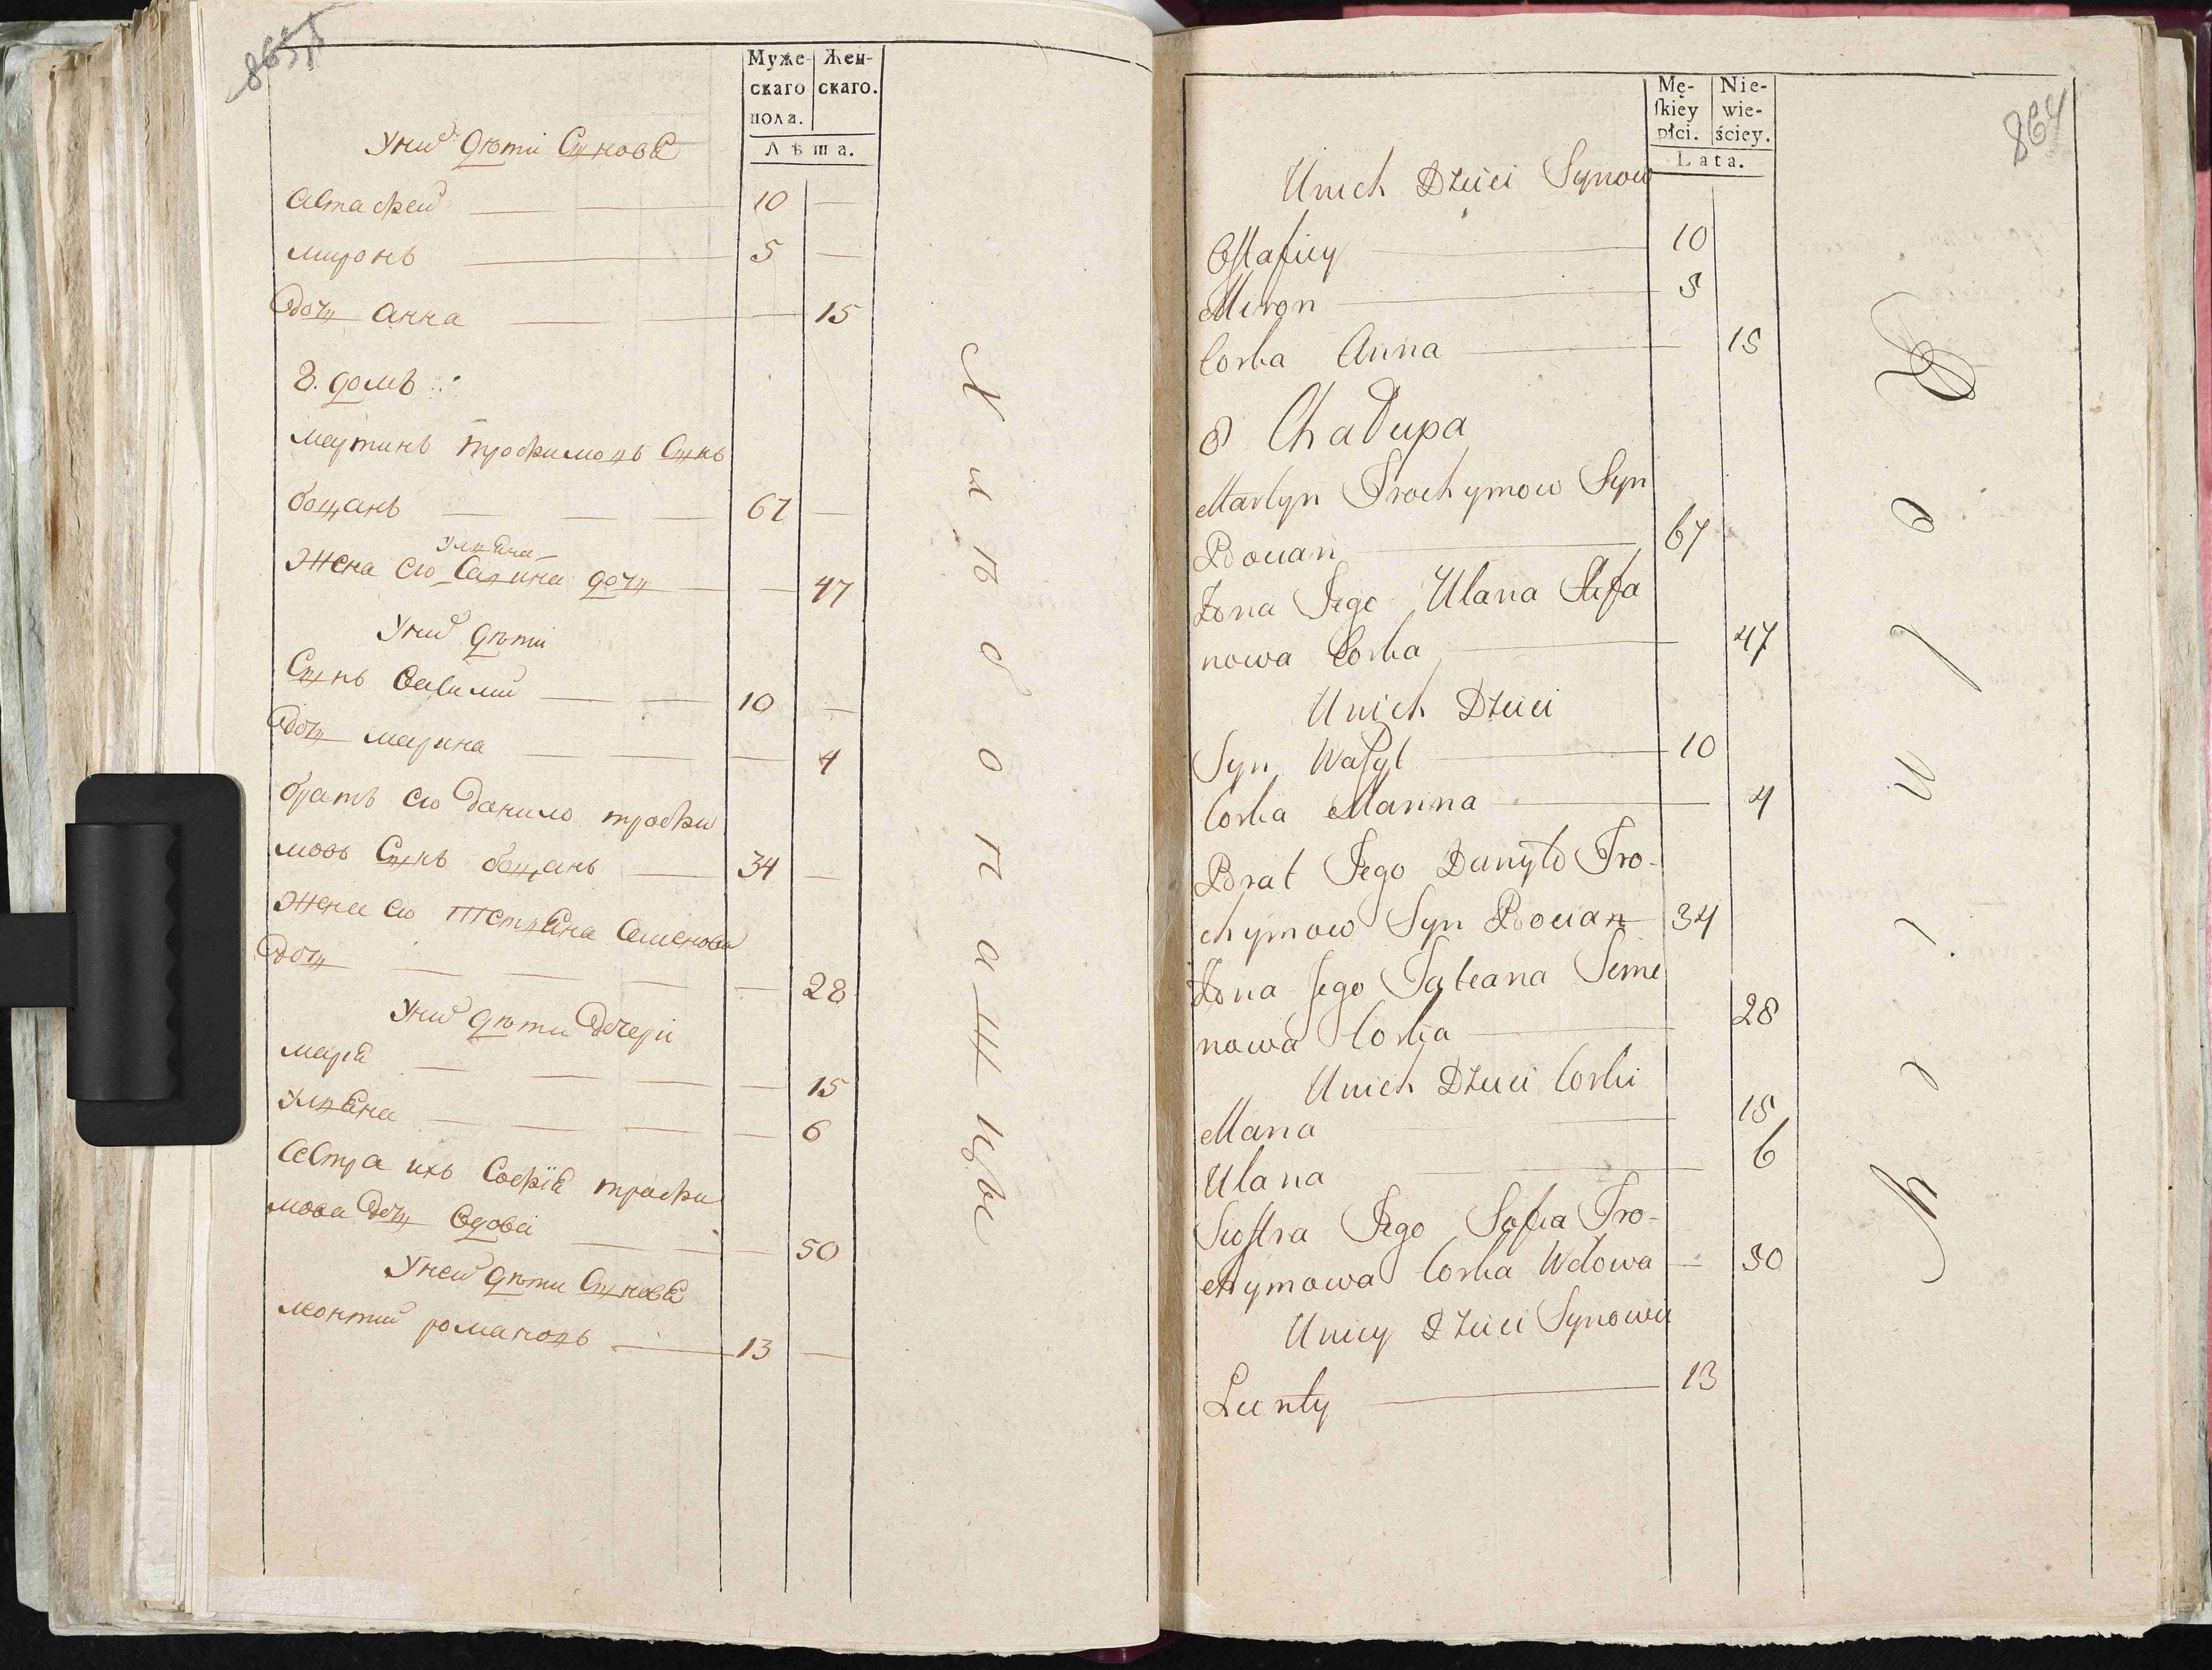 Муже- Жен-
скаго скаго.
пола.
Лѣта.
Униⷯ дѣти Сынове
Астафеи 10
миронъ 5
дочь анна 15
8. домъ
мартинъ трофимовъ Сынъ
боцанъ 67
улеана
Жена его дочь 47
Униⷯ дѣти
Сынъ василии 10
дочь марина 4
братъ его данило трофи
мовъ Сынъ боцанъ 34
Жена его тетеана семенова
дочь 28
Униⷯ дѣти дочери
мариа 15
улеана 6
Сестра ихъ Софїа трофи
мова дочь вдова 50
Унеи дѣти Сынове
леонтии романовъ 13
Хлѣбопашцы
864
Mę- Nie-
ſkiey wie-
płci. ściey.
Lata.
Unich Dzieci Synow
Oſtafiey 10
Miron 5
Corka Anna 15
8 Chałupa
Martyn Trochymow Syn
Bocian 67
Żona Jego Ulana Stefa
nowa Corka 47
Unich Dzieci
Syn Waſyl 10
Corka Marina 4
Brat Jego Danyło Tro-
chymow Syn Bocian 34
Żona Jego Tateana Seme
nowa Corka 28
Unich Dzieci Corki
Maria 15
Ulana 6
Sioſtra Jego Sofia Tro-
chymowa Corka Wdowa 50
Unicy Dzieci Synowie
Leonty 13